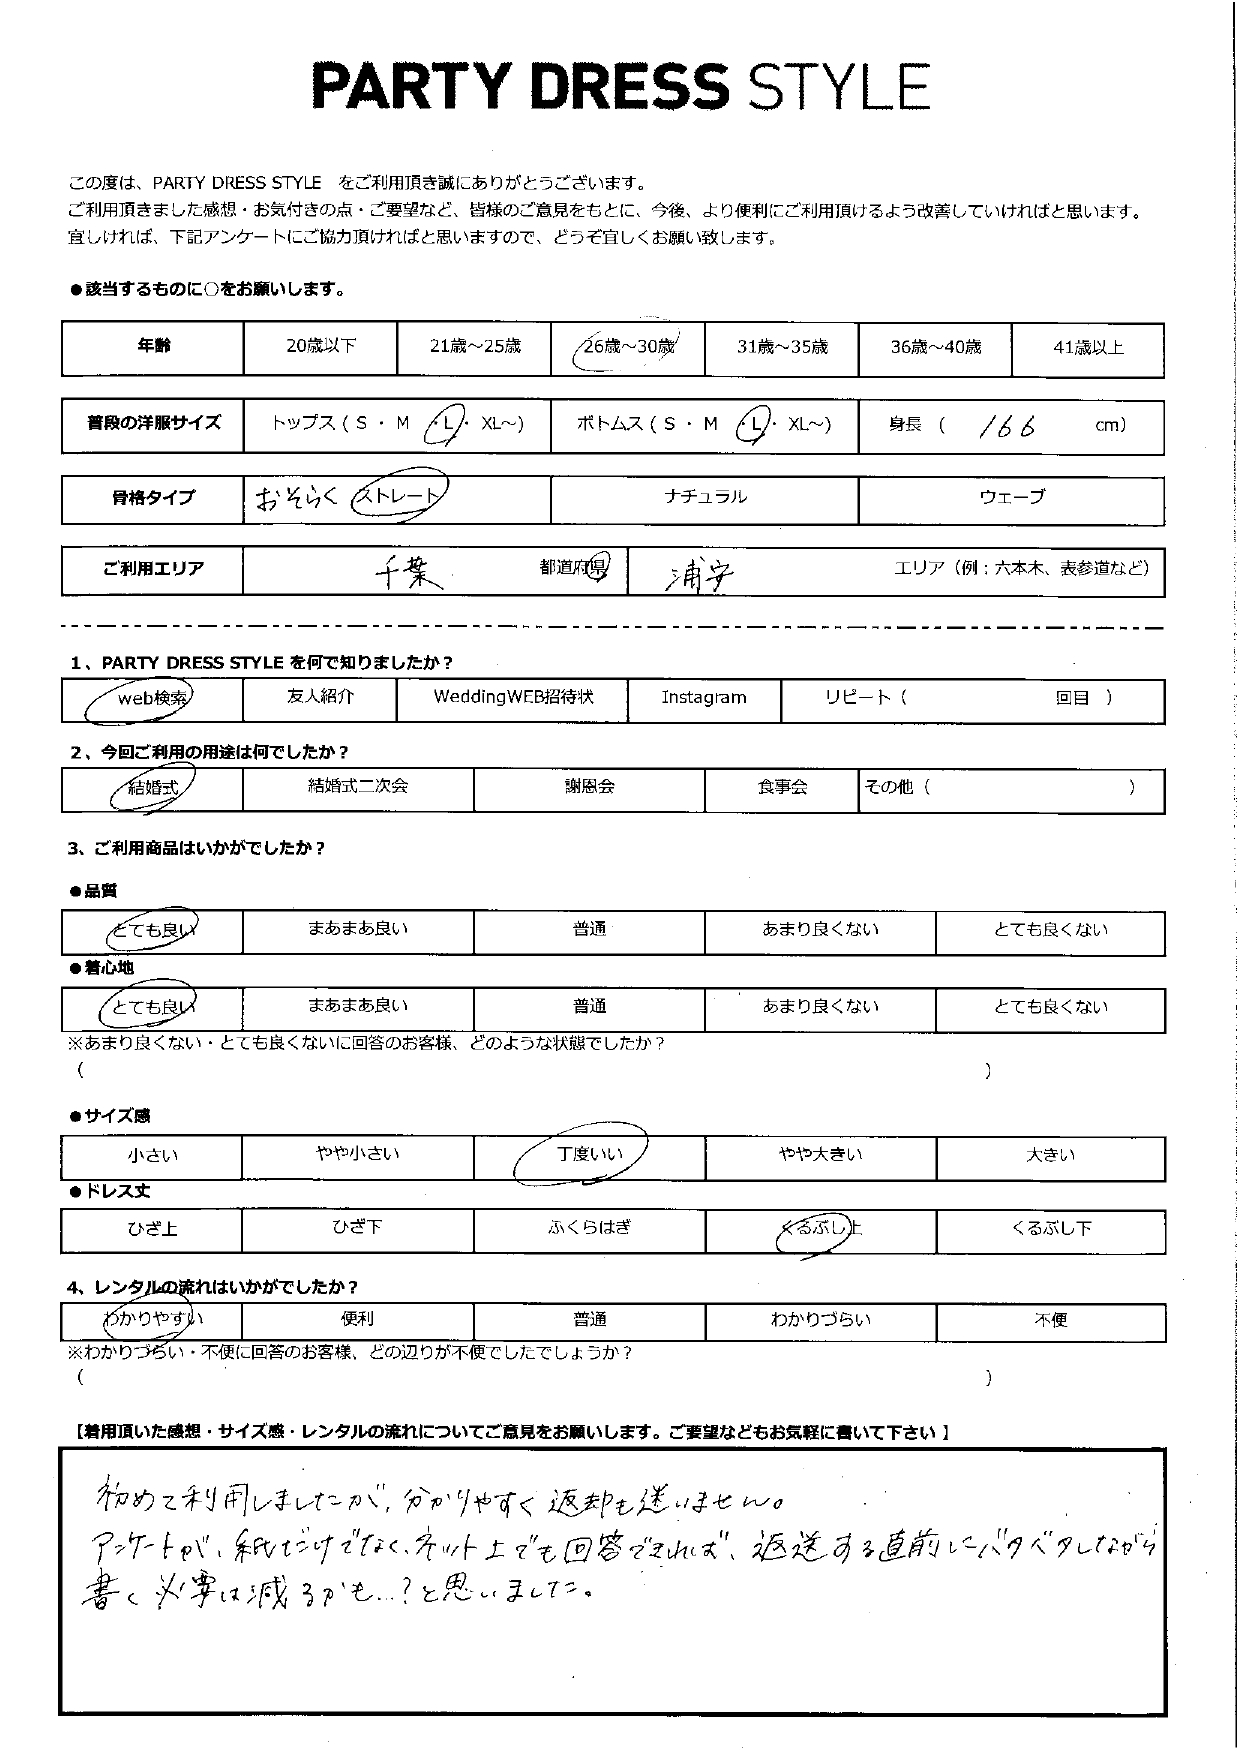 PARTY DRESS STYLE
この度は、PARTY DRESS STYLE をご利用頂き誠にありがとうございます。
ご利用頂きました感想・お気付きの点・ご要望など、皆様のご意見をもとに、今後、より便利にご利用頂けるよう改善していければと思います。
宜しければ、下記アンケートにご協力頂ければと思いますので、どうぞ宜しくお願い致します。
●該当するものに○をお願いします。
年齢 20歳以下 21歳～25歳 26歳～30歳 31歳～35歳 36歳～40歳 41歳以上
普段の洋服サイズ トップス ( S ・ M ・L・ XL～) ボトムス ( S ・ M ・L・ XL～) 身長 ( 166 cm)
骨格タイプ おそらく ストレート ナチュラル ウェーブ
ご利用エリア 千葉 都道府県 浦安 エリア（例：六本木、表参道など）
1、PARTY DRESS STYLE を何で知りましたか？
web検索 友人紹介 WeddingWEB招待状 Instagram リピート（ 回目 ）
2、今回ご利用の用途は何でしたか？
結婚式 結婚式二次会 謝恩会 食事会 その他（ ）
3、ご利用商品はいかがでしたか？
●品質
とても良い まあまあ良い 普通 あまり良くない とても良くない
●着心地
とても良い まあまあ良い 普通 あまり良くない とても良くない
※あまり良くない・とても良くないに回答のお客様、どのような状態でしたか？
( )
●サイズ感
小さい やや小さい 丁度いい やや大きい 大きい
●ドレス丈
ひざ上 ひざ下 ふくらはぎ くるぶし上 くるぶし下
4、レンタルの流れはいかがでしたか？
わかりやすい 便利 普通 わかりづらい 不便
※わかりづらい・不便に回答のお客様、どの辺りが不便でしたでしょうか？
( )
【着用頂いた感想・サイズ感・レンタルの流れについてご意見をお願いします。ご要望などもお気軽に書いて下さい 】
初めて利用しましたが、分かりやすく返却も迷いません。
アンケートが、紙だけでなく、ネット上でも回答できれば、返送する直前にバタバタしながら
書く必要は減るかも…？と思いました。